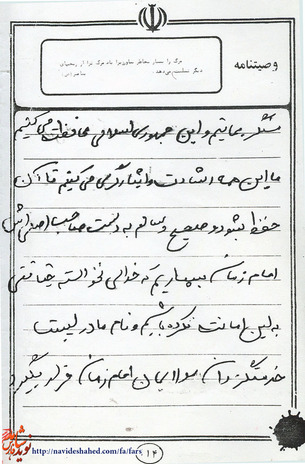 وصیتنامه
مرگ را بسیار بخاطر بیاورید یاد مرگ ترا از رنجهای
دیگر تسلیت می‌دهد.
متشکر نمائیم و این جمهوری اسلامی محافظت می‌کنیم
ما این همه رشادت و ایثارگری می‌کنیم تا آن
حفظ بشود و صحیح و سالم به دست صاحب اصلی‌اش
امام زمان بسپاریم که خدای نخواسته خیانتی
به این امانت نکرده باشیم و نام ما در لیست
خدمتگزاران مولایمان امام زمان قرار بگیرد
۱۴
نوید شاهد
http://navideshahed.com/fa/fars